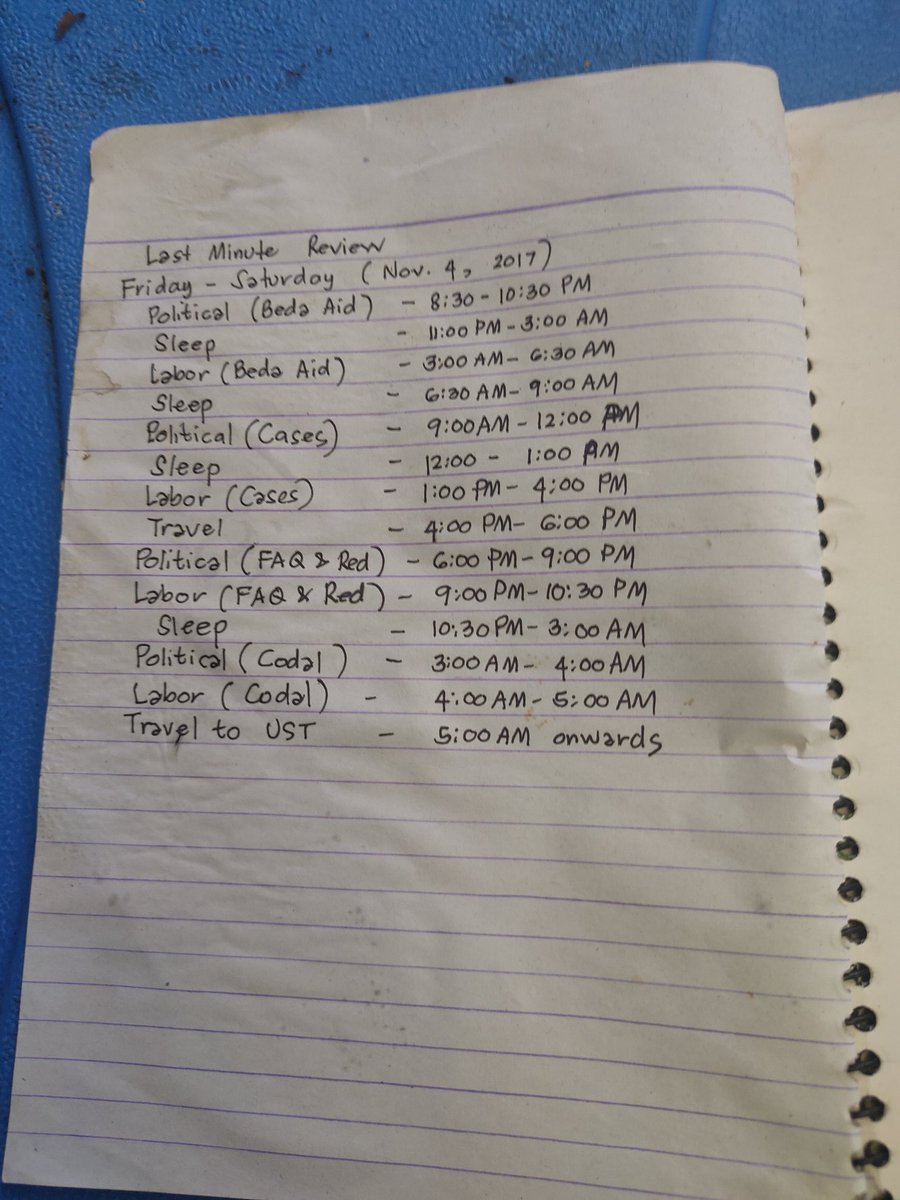 Last Minute Review
Friday - Saturday (Nov. 4, 2017)
Political (Beda Aid) - 8:30 - 10:30 PM
Sleep - 11:00 PM - 3:00 AM
Labor (Beda Aid) - 3:00 AM - 6:30 AM
Sleep - 6:30 AM - 9:00 AM
Political (Cases) - 9:00 AM - 12:00 PM
Sleep - 12:00 - 1:00 PM
Labor (Cases) - 1:00 PM - 4:00 PM
Travel - 4:00 PM - 6:00 PM
Political (FAQ & Red) - 6:00 PM - 9:00 PM
Labor (FAQ & Red) - 9:00 PM - 10:30 PM
Sleep - 10:30 PM - 3:00 AM
Political (Codal) - 3:00 AM - 4:00 AM
Labor (Codal) - 4:00 AM - 5:00 AM
Travel to UST - 5:00 AM onwards